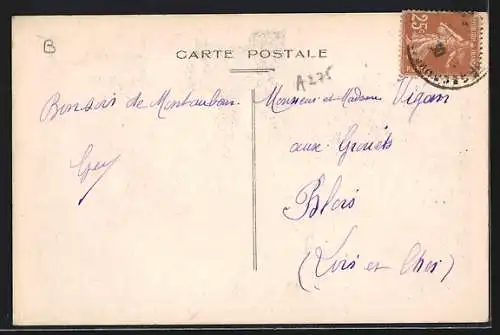 B
CARTE POSTALE
A275
25c
Bonsoir de Montauban.
Guy
Monsieur et Madame Vigan
aux Grouëts
Blois
(Loir et Cher)